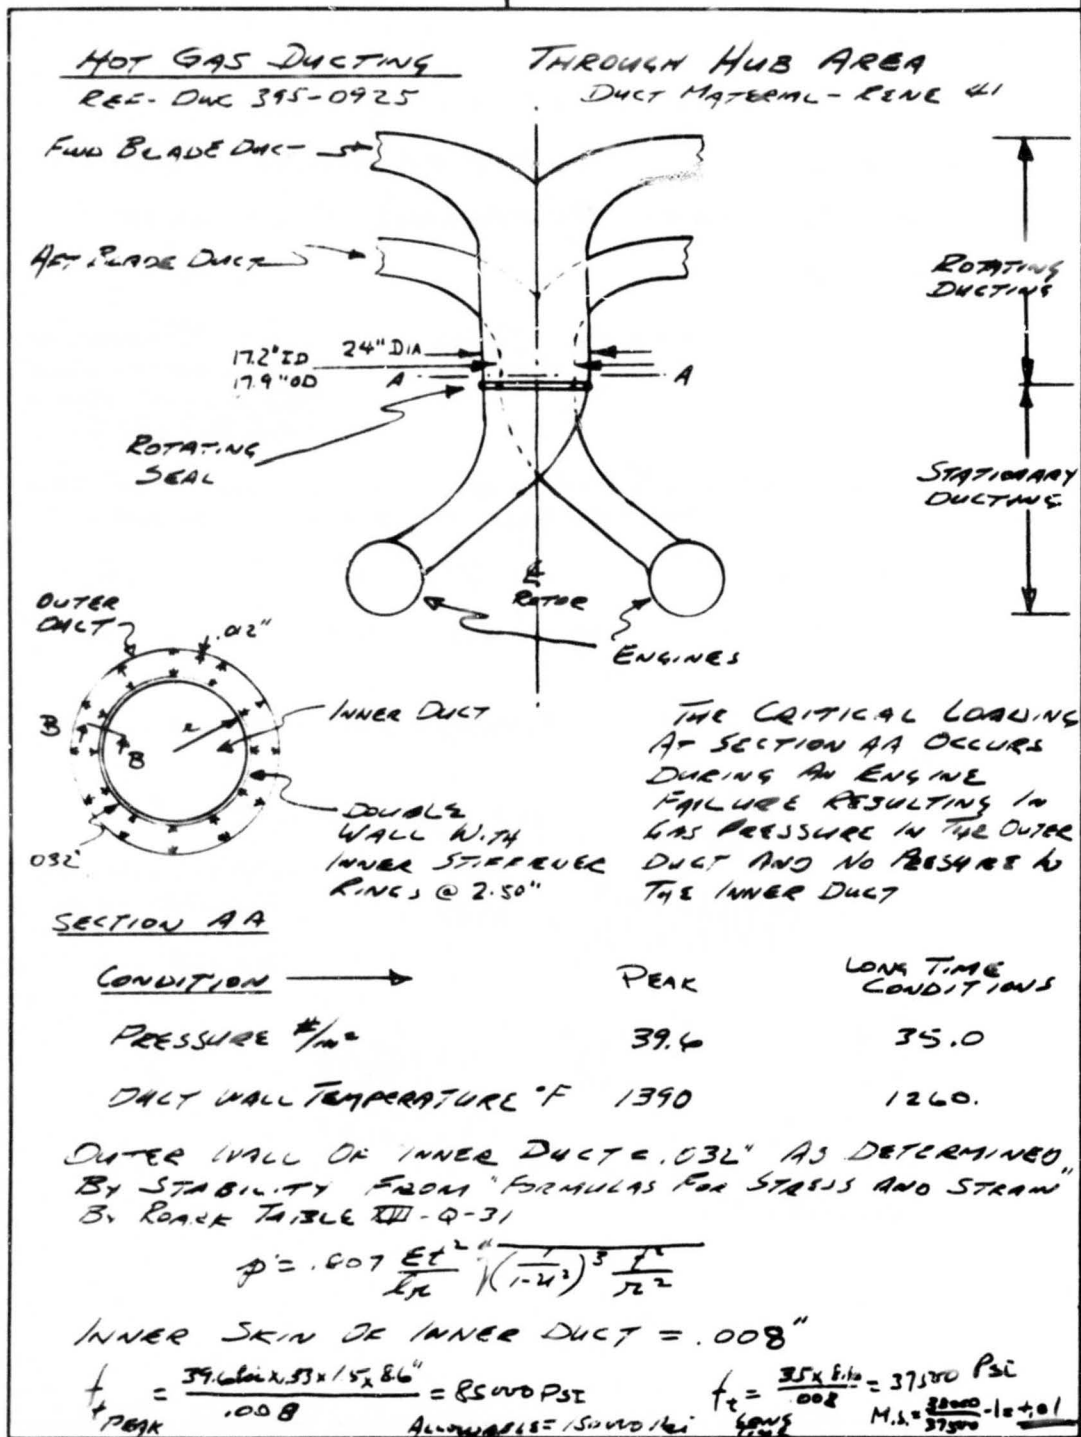 HOT GAS DUCTING THROUGH HUB AREA
REF- DWG 395-0925 DUCT MATERIAL - RENE 41
FWD BLADE DUCT
AFT BLADE DUCT
ROTATING
DUCTING
17.2" ID 24" DIA
17.9" OD A A
ROTATING
SEAL
STATIONARY
DUCTING
℄
ROTOR
ENGINES
OUTER
DUCT
.012"
B
B
r
INNER DUCT
.032"
DOUBLE
WALL WITH
INNER STIFFENER
RINGS @ 2.50"
THE CRITICAL LOADING
AT SECTION AA OCCURS
DURING AN ENGINE
FAILURE RESULTING IN
GAS PRESSURE IN THE OUTER
DUCT AND NO PRESSURE IN
THE INNER DUCT
SECTION AA
CONDITION → PEAK LONG TIME
CONDITIONS
PRESSURE #/in² 39.6 35.0
DUCT WALL TEMPERATURE °F 1390 1260.
OUTER WALL OF INNER DUCT = .032" AS DETERMINED
BY STABILITY FROM "FORMULAS FOR STRESS AND STRAIN"
BY ROARK TABLE XVI - Q-31
p' = .807 Et²/lr ⁴√(1/1-u²)³ t²/r²
INNER SKIN OF INNER DUCT = .008"
f t PEAK = 39.6 x 1.5 x 8.6"/.008 = 85000 PSI
ALLOWABLE = 150000
f t LONG TIME = 35 x 8.6/.008 = 37500 PSI
M.S. = 38000/37500 -1 = +.01